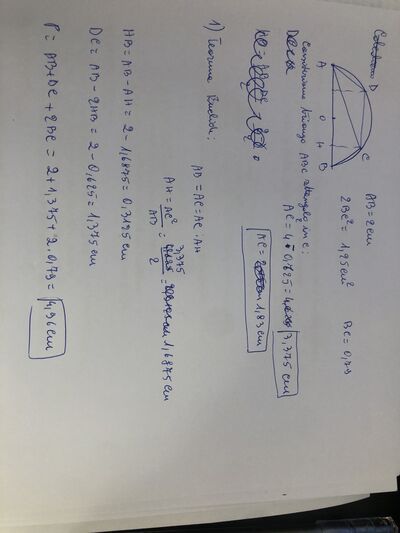 D
C
A O H B
AB = 2 cm
2BC² = 1,25 cm²
BC = 0,79
Consideriamo triangolo ABC rettangolo in C:
AC² = 4 - 0,625 = 3,375 cm
AC = 1,83 cm
1) Teorema Euclide:
AB = AC = AC : AH
AH = AC² / AB = 3,375 / 2 = 1,6875 cm
HB = AB - AH = 2 - 1,6875 = 0,3125 cm
DC = AB - 2HB = 2 - 0,625 = 1,375 cm
P = AB + DC + 2BC = 2 + 1,375 + 2 · 0,79 = 4,96 cm